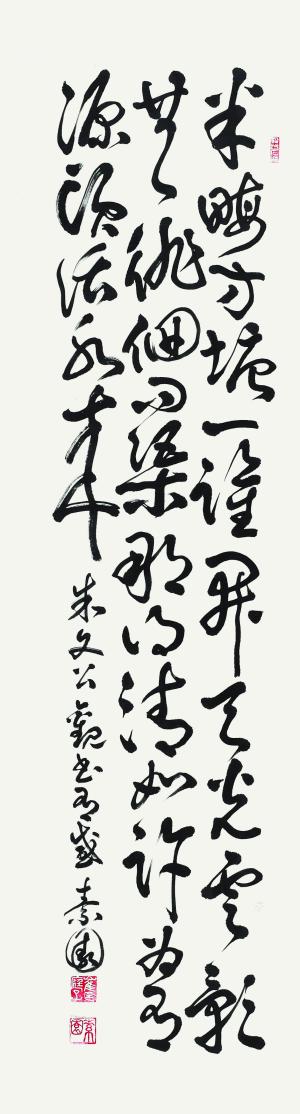 半畮方塘一鑑開天光雲影
共徘徊問渠那得清如許為有
源頭活水來
朱文公觀書有感 素園